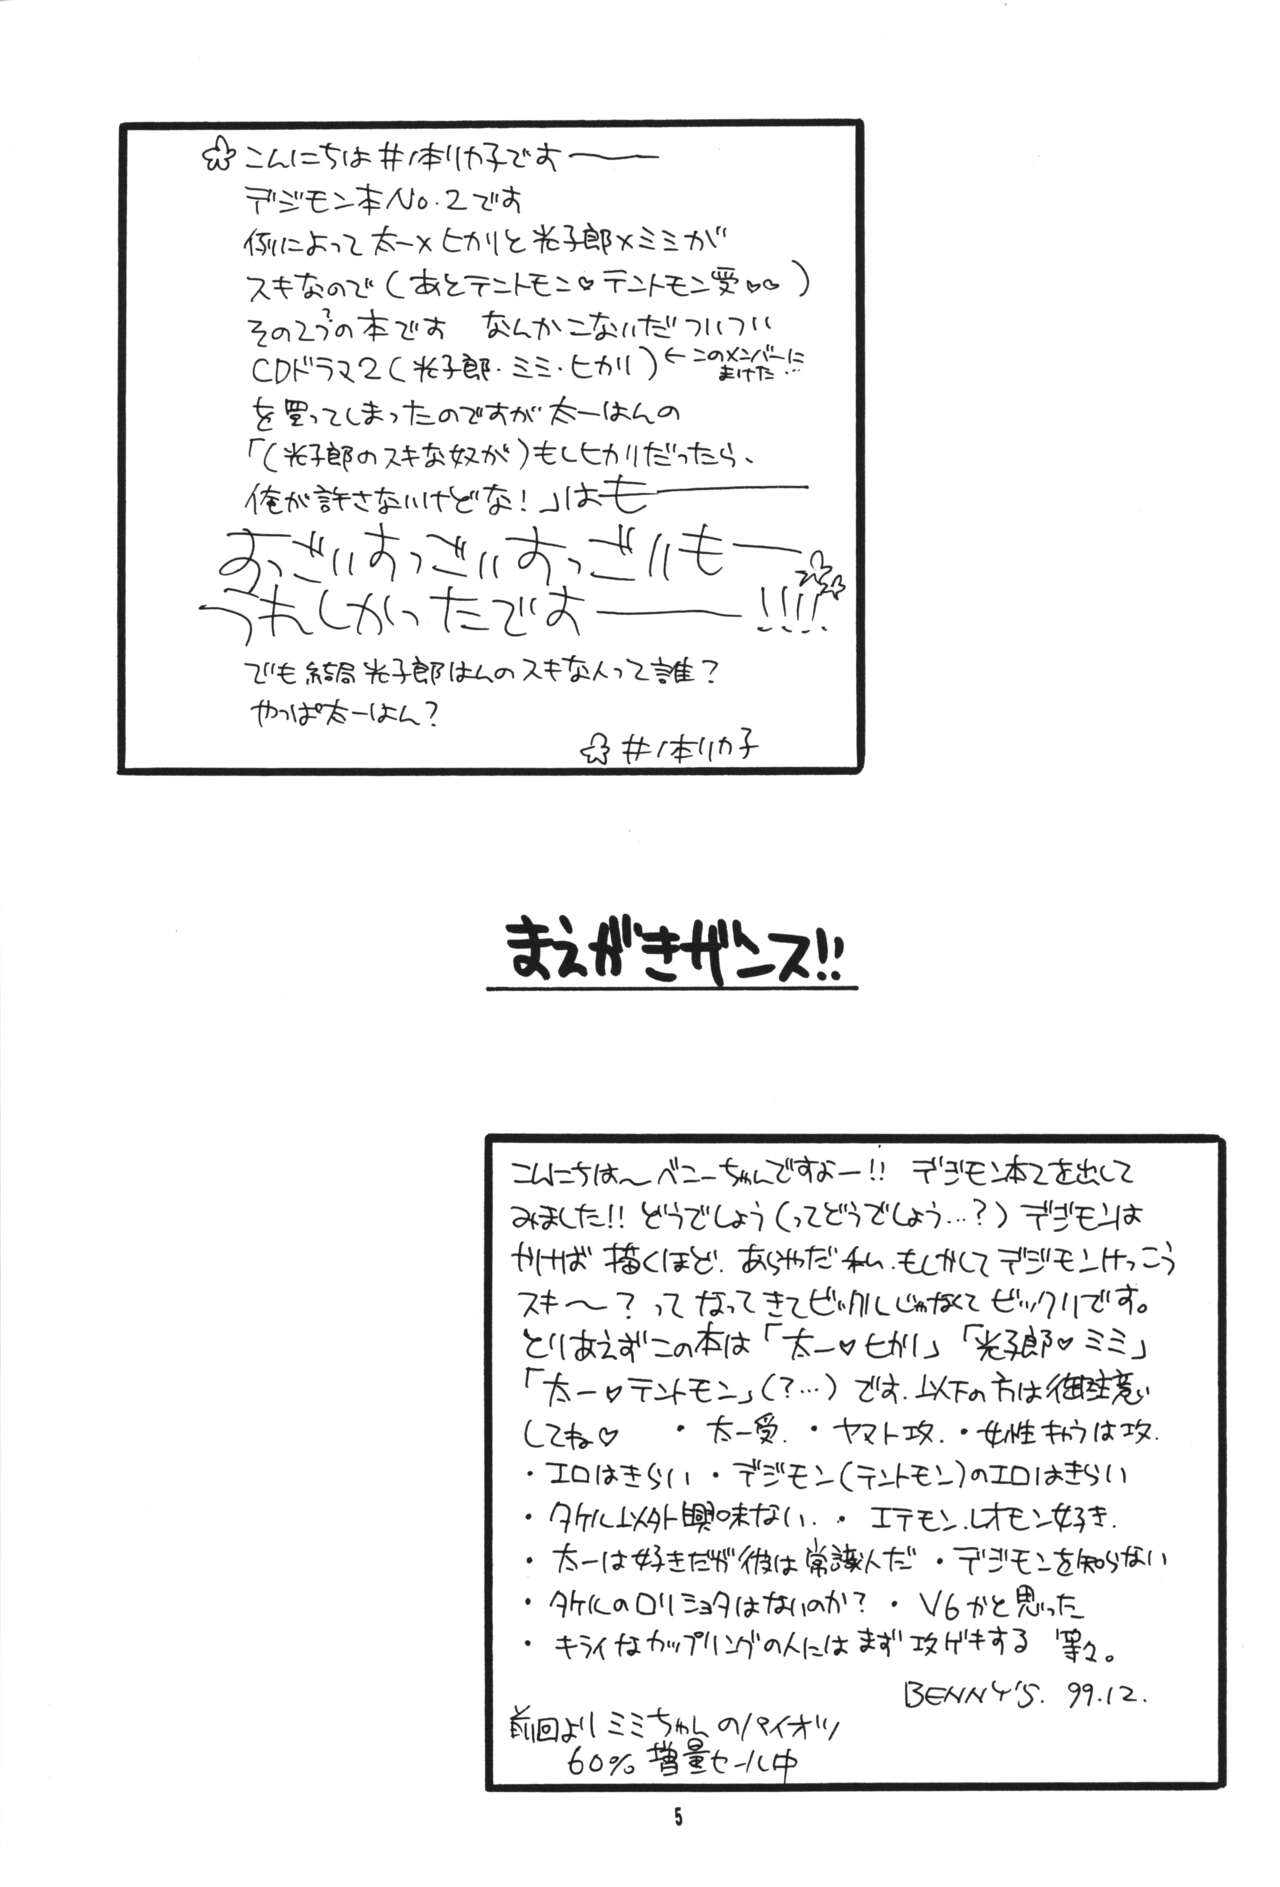 こんにちは井ノ本リカ子です――
デジモン本No.2です
例によって太一×ヒカリと光子郎×ミミが
スキなので(あとテントモン♡テントモン受♡♡)
その2つ?の本です なんかこないだついつい
CDドラマ2(光子郎・ミミ・ヒカリ)←このメンバーに
まけた…
を買ってしまったのですが太一はんの
「(光子郎のスキな奴が)もしヒカリだったら、
俺が許さないけどな!」はも――
すっごいすっごいすっごいも――
うれしかったです――!!!!
でも結局光子郎はんのスキな人って誰?
やっぱ太一はん?
井ノ本リカ子
まえがきザンス!!
こんにちは〜ベニーちゃんですよー!! デジモン本2を出して
みました!! どうでしょう(ってどうでしょう…?)デジモンは
かけば描くほど、あらやだ私、もしかしてデジモンけっこう
スキ〜?ってなってきてビックルじゃなくてビックリです。
とりあえずこの本は「太一♡ヒカリ」「光子郎♡ミミ」
「太一♡テントモン」(?…)です.以下の方は御注意
してね♡ ・太一受. ・ヤマト攻. ・女性キャラは攻.
・エロはきらい ・デジモン(テントモン)のエロはきらい
・タケル以外興味ない. ・エテモン.レオモン好き.
・太一は好きだが彼は常識人だ ・デジモンを知らない
・タケルのロリショタはないのか? ・V6かと思った
・キライなカップリングの人にはまず攻ゲキする 等々。
BENNY'S. 99.12.
前回よりミミちゃんのパイオツ
60%増量セール中
5